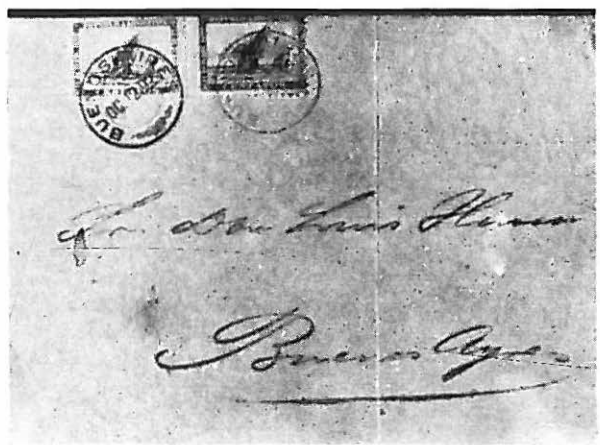 BUENOS AIRES
OC 12
Sr. Don Luis
Buenos Ayres